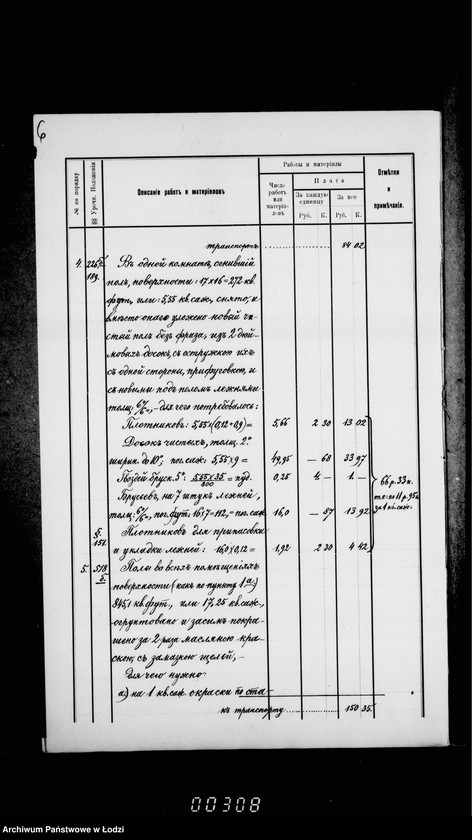 6
№ по порядку
§§ Урочн. Положенія
Описаніе работъ и матеріаловъ
Работы и матеріалы
Число работъ или матеріаловъ
Плата
За каждую единицу
За все
Руб. К. Руб. К.
Отмѣтки и примѣчанія.
транспортъ 84 02
4. Въ одной комнатѣ, сгнившій
189.
полъ, поверхности: 17 х 16 = 272 кв.
фут., или: 5,55 кв. саж., снято, и
вмѣсто онаго уложено новый чи-
стый полъ безъ фриза, изъ 2 дюй-
мовыхъ досокъ, съ остружкою ихъ
съ одной стороны, прифуговкою, и
съ новыми подъ поломъ лежнями
толщ. 6/6", – для чего потребовалось:
Плотниковъ: 5,55 х (0,12+0,9) = 5,66 2 30 13 02
Досокъ чистыхъ, толщ. 2"
ширин. до 10"; пог. саж: 5,55 х 9 = 49,95 — 68 33 97
Гвоздей бруск. 5": = пуд. 0,25 4 — 1 —
Брусьевъ, на 7 штукъ лежней,
толщ: 6/6", пог. фут: 16 х 7 = 112, = пог. саж. 16,0 — 87 13 92
66 р. 33 к.
т.е. по 11 р. 95 к.
за 1 кв. саж.
§.
151.
Плотниковъ для припасовки
и укладки лежней: 16,0 х 0,12 = 1,92 2 30 4 42
5. 518
Полы во всѣхъ помѣщеніяхъ
поверхности (какъ по пункту 1.а.)
845,1 кв. фут., или 17,25 кв. саж.,
огрунтовано и засимъ покра-
шено за 2 раза масляною кра-
скою, съ замазкою щелей, –
Для чего нужно:
а) на 1 кв. саж. окраски по ста-
къ транспорту 150 35.
Archiwum Państwowe w Łodzi
00308